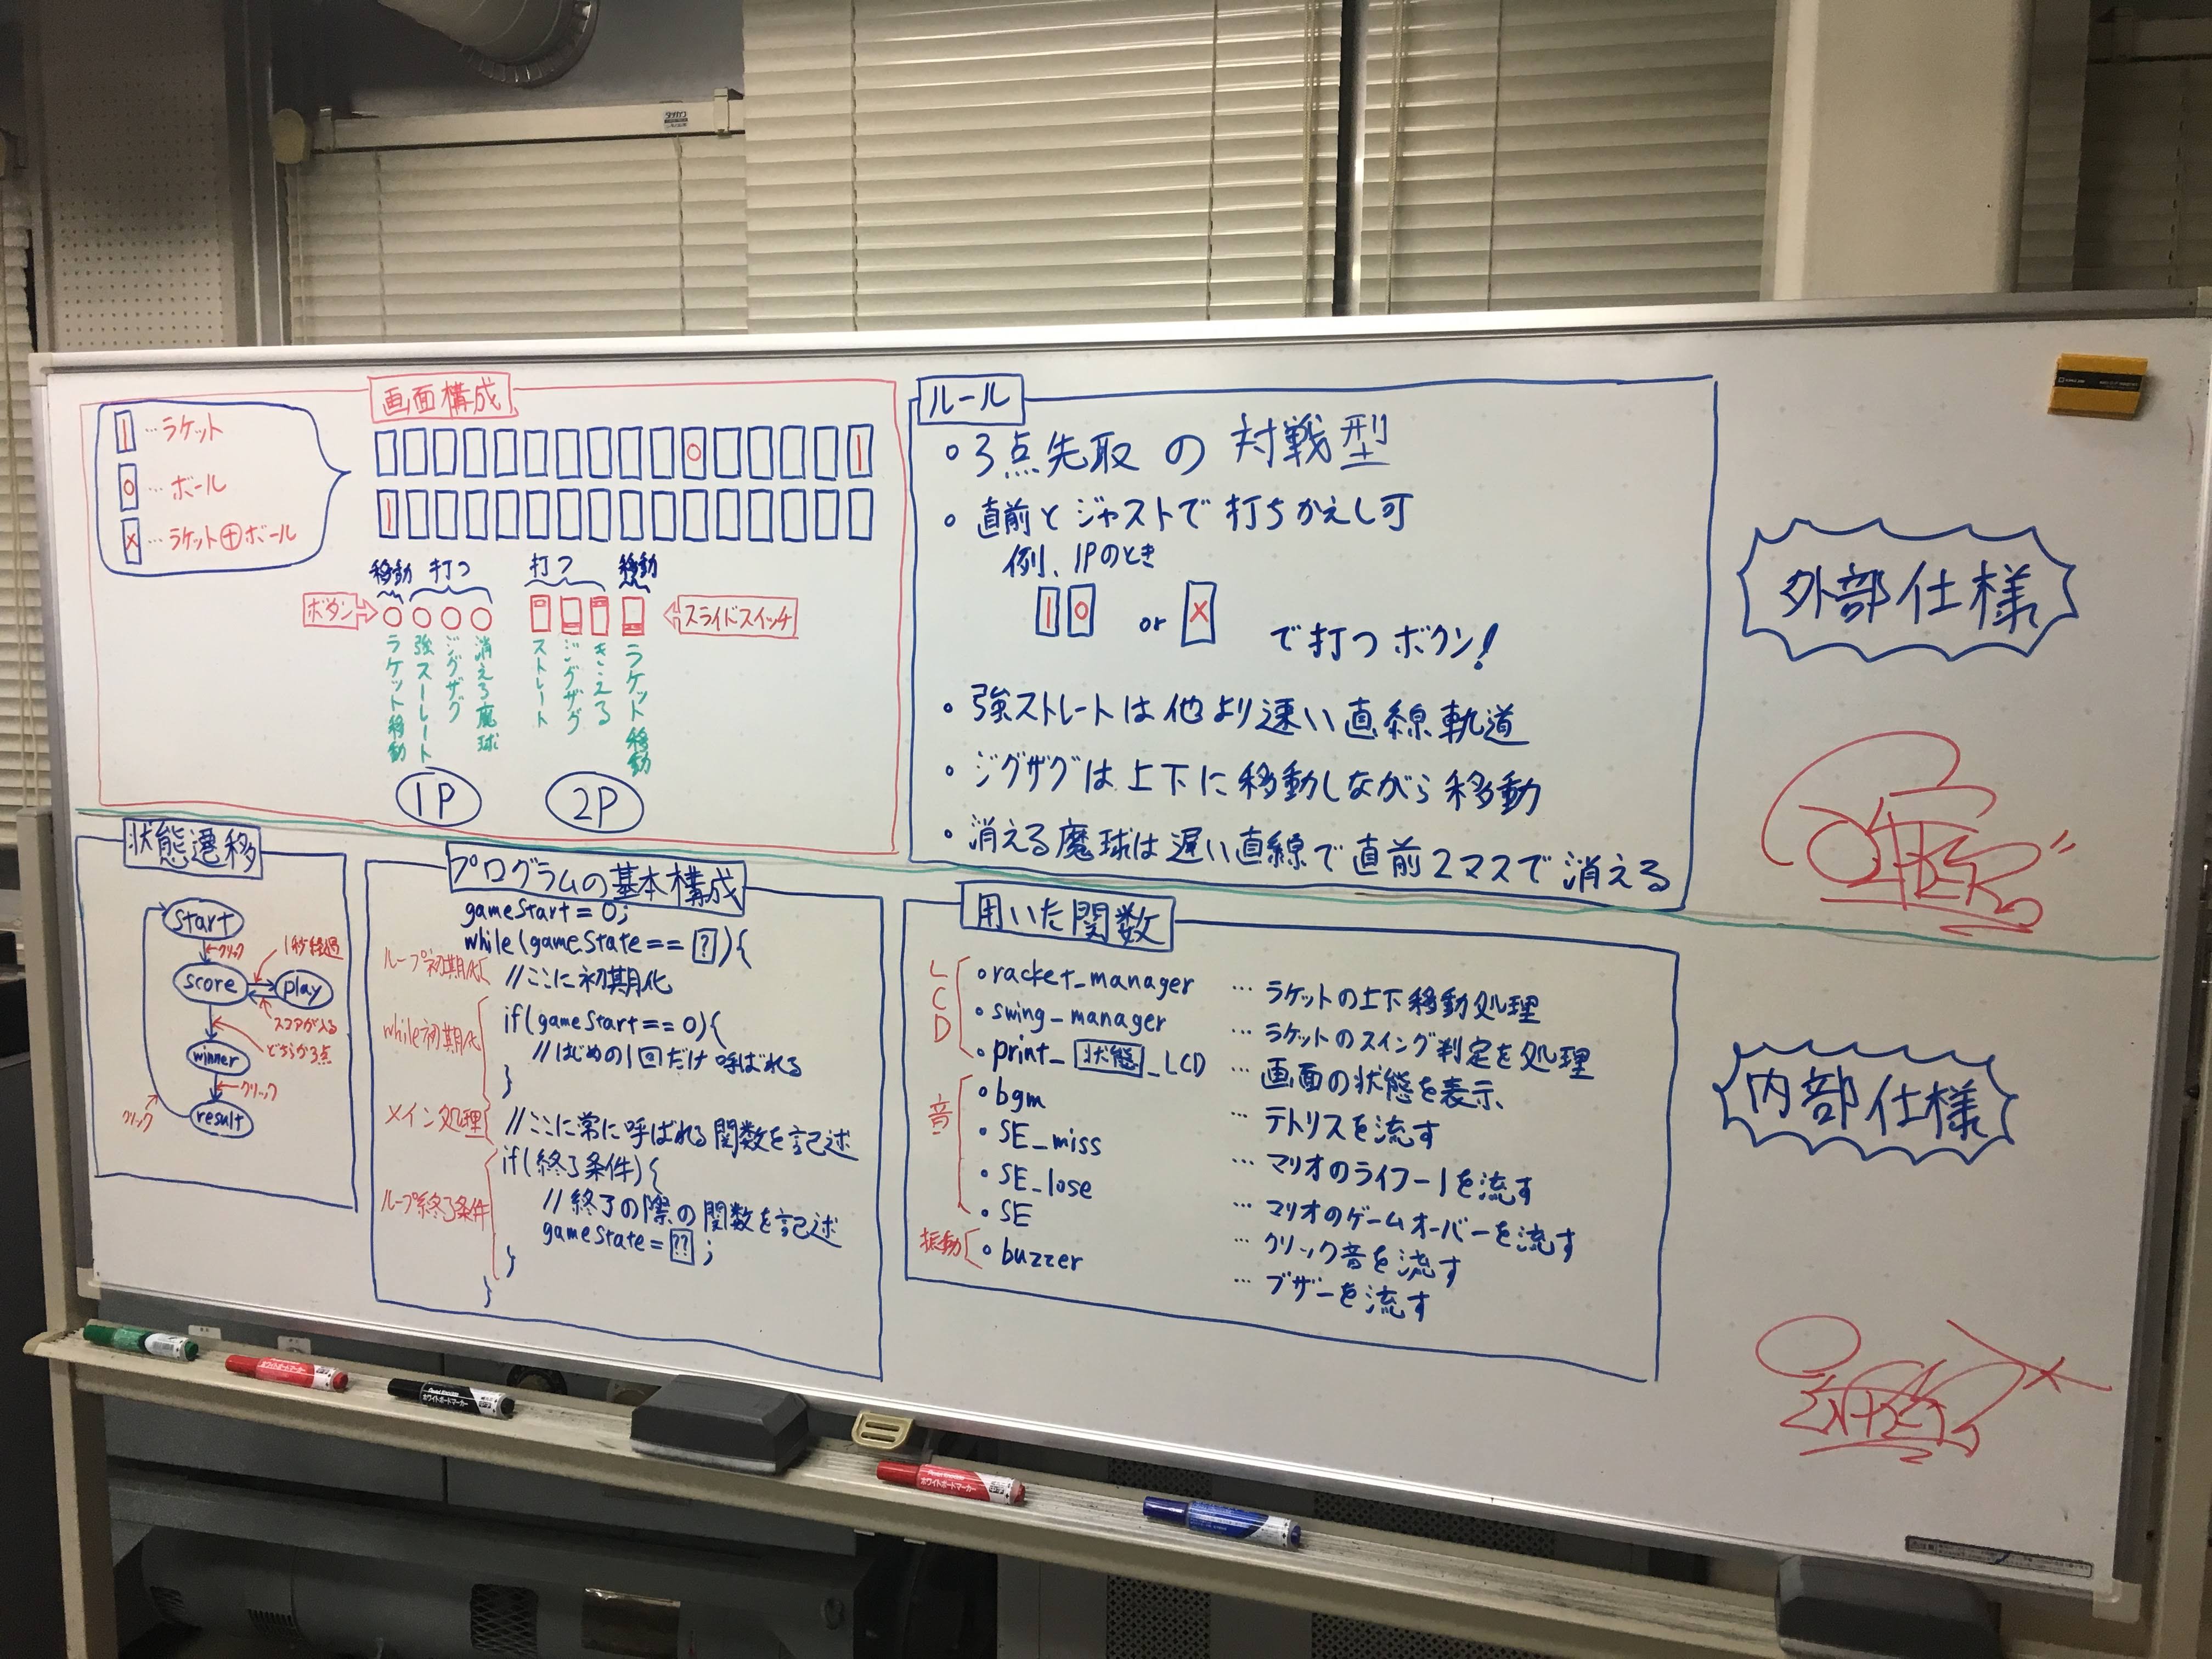 画面構成
| … ラケット
○ … ボール
× … ラケット⊕ボール
移動 打つ 打つ 移動
ボタン
スライドスイッチ
ラケット移動
強ストレート
ジグザグ
消える魔球
ストレート
ジグザグ
きえる
ラケット移動
1P 2P
ルール
・3点先取の対戦型
・直前とジャストで打ちかえし可
例、1Pのとき
| ○ or × で打つボタン!
・強ストレートは他より速い直線軌道
・ジグザグは上下に移動しながら移動
・消える魔球は遅い直線で直前2マスで消える
外部仕様
状態遷移
start
クリック
1秒経過
score play
スコアが入る
どちらか3点
winner
クリック
クリック
result
プログラムの基本構成
gameStart = 0;
while(gameState == ?){
ループ初期化
//ここに初期化
while初期化
if(gameStart == 0){
//はじめの1回だけ呼ばれる
}
メイン処理
//ここに常に呼ばれる関数を記述
ループ終了条件
if(終了条件){
//終了の際の関数を記述
gameState = ??;
}
}
用いた関数
LCD
・racket_manager … ラケットの上下移動処理
・swing_manager … ラケットのスイング判定を処理
・print_状態_LCD … 画面の状態を表示
音
・bgm … テトリスを流す
・SE_miss … マリオのライフー1を流す
・SE_lose … マリオのゲームオーバーを流す
・SE … クリック音を流す
振動
・buzzer … ブザーを流す
内部仕様
ホワイトボードマーカー
ホワイトボードマーカー
ホワイトボードマーカー